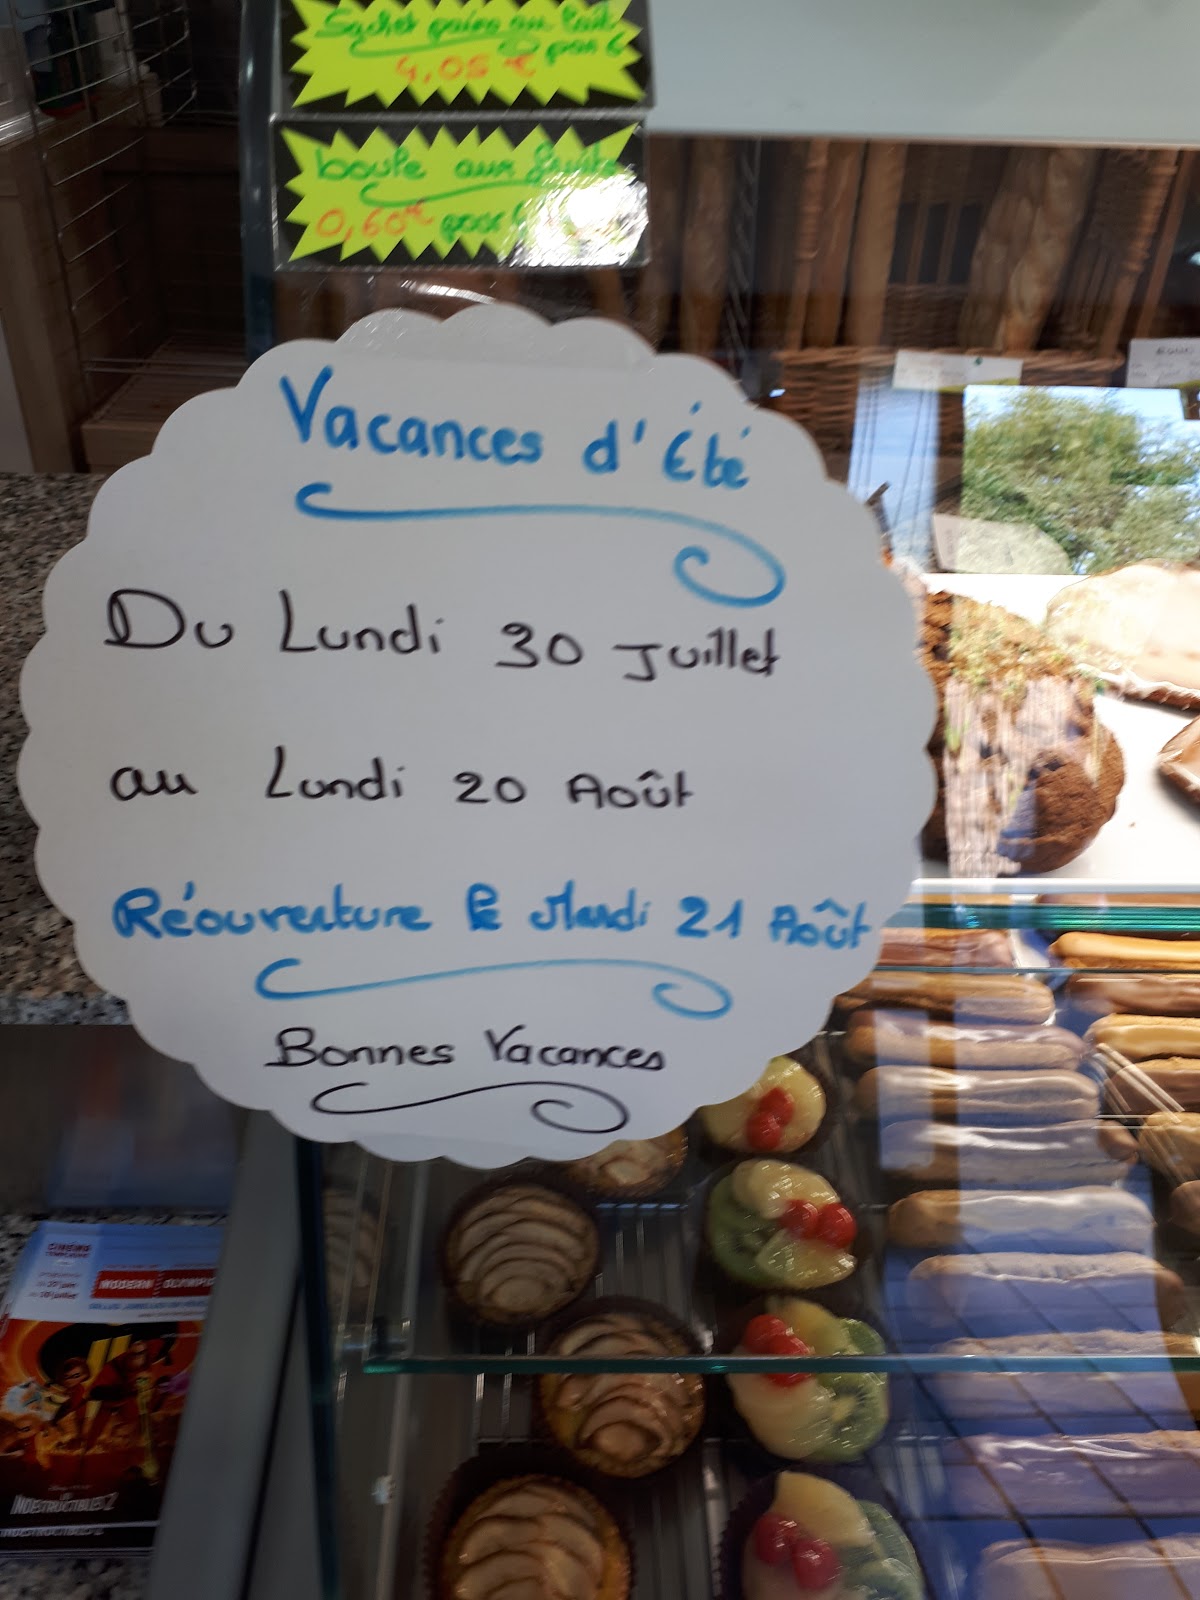 Sachet pains au lait
par 6
4,05 €
boule aux fruits
0,60
pour
Vacances d'Été
Du Lundi 30 Juillet
au Lundi 20 Août
Réouverture le Mardi 21 Août
Bonnes Vacances
CINÉMA
MODERN OLYMPIC
INDESTRUCTIBLES 2